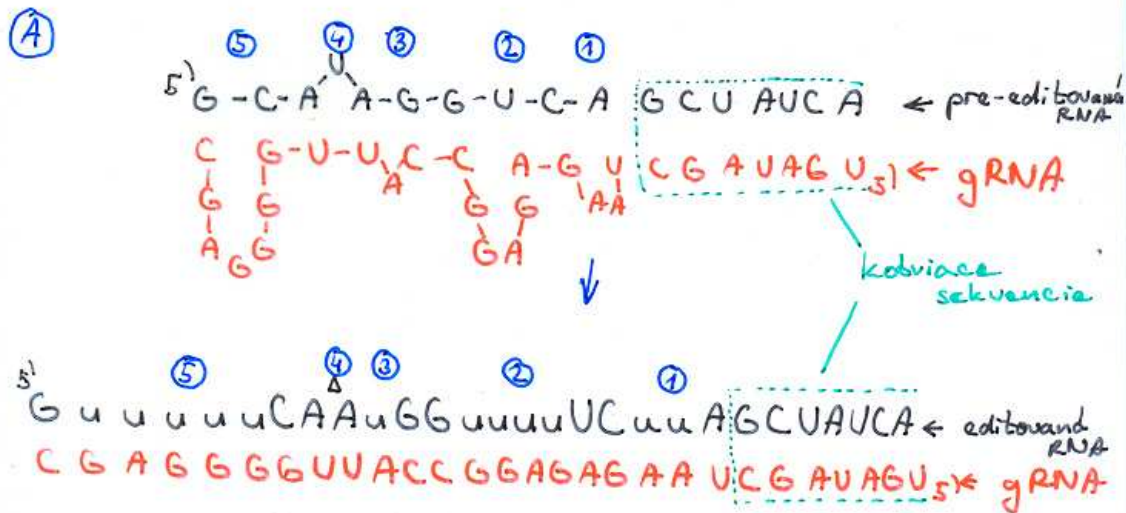 A
5 4 3 2 1
U
5' G - C - A A - G - G - U - C - A G C U A U C A ← pre-editovaná RNA
C G - U - U C - C A - G U C G A U A G U 5' ← gRNA
A
G G G G A A A
A G G G A
↓
kotviace
sekvencie
5 4 3 2 1
Δ
5' G u u u u u C A A u G G u u u u U C u u A G C U A U C A ← editovaná RNA
C G A G G G G U U A C C G G A G A G A A U C G A U A G U 5' ← gRNA